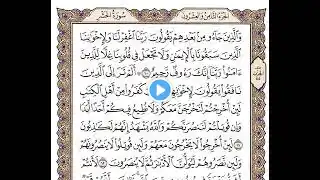 الجزء الثامن والعشرون
سورة الحشر
وَالَّذِينَ جَاءُو مِنْ بَعْدِهِمْ يَقُولُونَ رَبَّنَا اغْفِرْ لَنَا وَلِإِخْوَانِنَا
الَّذِينَ سَبَقُونَا بِالْإِيمَانِ وَلَا تَجْعَلْ فِي قُلُوبِنَا غِلًّا لِلَّذِينَ
ءَامَنُوا رَبَّنَا إِنَّكَ رَءُوفٌ رَحِيمٌ أَلَمْ تَرَ إِلَى الَّذِينَ
نَافَقُوا يَقُولُونَ لِإِخْوَانِهِمُ كَفَرُوا مِنْ أَهْلِ الْكِتَابِ
لَئِنْ أُخْرِجْتُمْ لَنَخْرُجَنَّ مَعَكُمْ وَلَا نُطِيعُ فِيكُمْ أَحَدًا أَبَدًا
وَإِنْ قُوتِلْتُمْ لَنَنْصُرَنَّكُمْ وَاللَّهُ يَشْهَدُ إِنَّهُمْ لَكَاذِبُونَ
لَئِنْ أُخْرِجُوا لَا يَخْرُجُونَ مَعَهُمْ وَلَئِنْ قُوتِلُوا لَا يَنْصُرُونَهُمْ
وَلَئِنْ نَصَرُوهُمْ لَيُوَلُّنَّ الْأَدْبَارَ ثُمَّ لَا يُنْصَرُونَ لَأَنْتُمْ